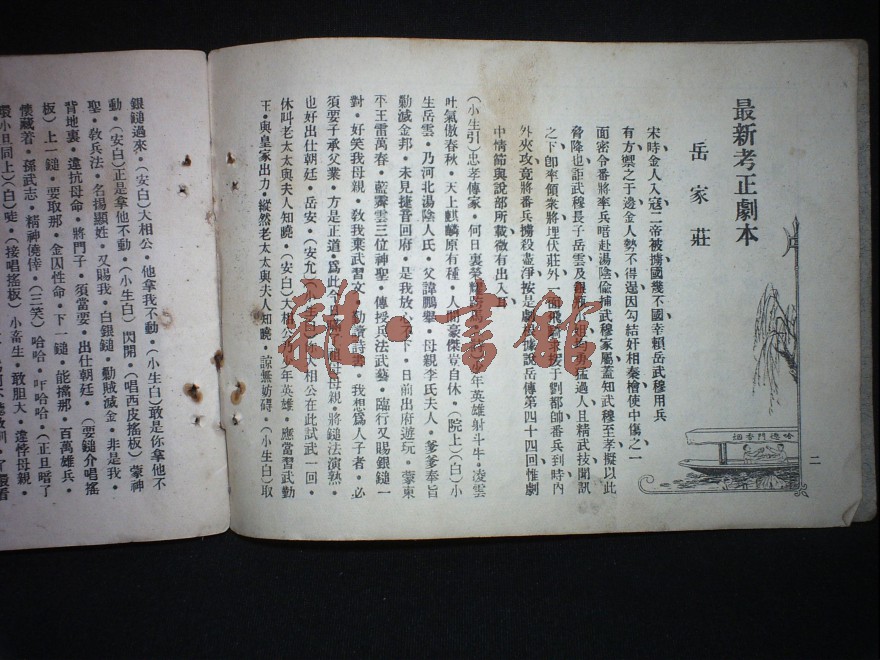 最新考正劇本
岳家莊
宋時金人入寇二帝被擄國幾不國幸賴岳武穆用兵
有方禦之于邊金人勢不得逞因勾結奸相秦檜使中傷之一
面密令番將率兵暗赴湯陰偸捕武穆家屬蓋知武穆至孝擬以此
脅降也詎武穆長子岳雲及銀瓶小姐均勇猛過人且精武技聞訊
之下卽率領衆將埋伏莊外一面飛報求援于劉都帥番兵到時內
外夾攻竟將番兵擄殺盡淨按是劇根據說岳傳第四十四回惟劇
中情節與說部所載微有出入耳
(小生引)忠孝傳家•何日裏榮耀 少年英雄射斗牛•凌雲
吐氣傲春秋•天上麒麟原有種•人間豪傑豈自休•(院上)(白)小
生岳雲•乃河北湯陰人氏•父諱鵬舉•母親李氏夫人•爹爹奉旨
勦滅金邦•未見捷音回府•是我放心不下•日前出府遊玩•蒙東
平王雷萬春•藍霽雲三位神聖•傳授兵法武藝•臨行又賜銀鎚一
對•好笑我母親•敎我棄武習文•勤讀詩書•我想爲人子者•必
須要子承父業•方是正道•爲此 母親•將鎚法演熟•
也好出仕朝廷•岳安•(安允)(小生白) 大相公在此試武一回•
休叫老太太與夫人知曉•(安白)大相 少年英雄•應當習武勤
王•與皇家出力•縱然老太太與夫人知曉•諒無妨碍•(小生白)取
二
哈德門香烟
銀鎚過來•(安白)大相公•他拿我不動•(小生白)敢是你拿他不
動•(安白)正是拿他不動•(小生白)閃開•(唱西皮搖板)蒙神
聖•敎兵法•名揚顯姓•又賜我•白銀鎚•勦賊滅金•非是我•
背地裏•違抗母命•將門子•須當要•出仕朝廷•(耍鎚介唱搖
板)上一鎚•要取那•金囚性命•下一鎚•能擋那•百萬雄兵•
懷藏着•孫武志•精神僥倖•(三笑)哈哈•吓哈哈•(正旦暗了
環小旦同上)(白)唗•(接唱搖板)小畜生•敢胆大•違悖母親•
雜•書館